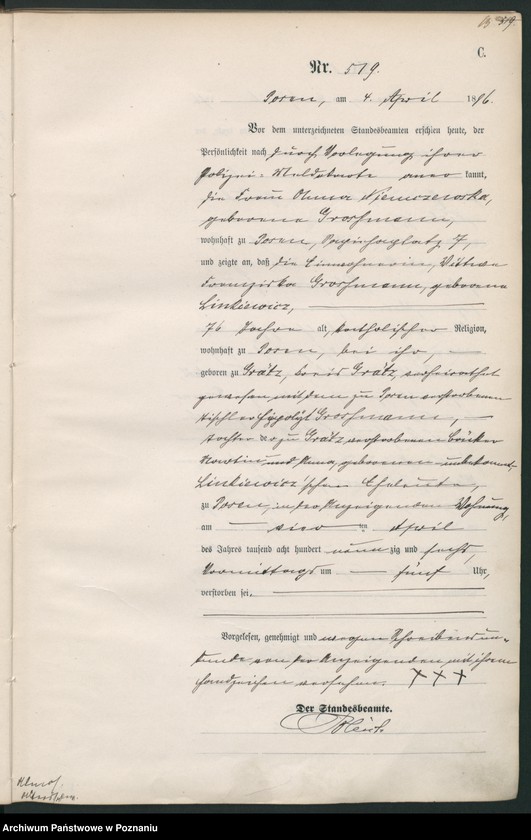 519.
C.
Nr. 519.
Posen, am 4. April 1896.
Vor dem unterzeichneten Standesbeamten erschien heute, der
Persönlichkeit nach durch Vorlegung ihrer
Polizei-Meldekarte anerkannt,
die Frau Anna Niemczewska,
geborene Grossmann,
wohnhaft zu Posen, Sapiehaplatz 7,
und zeigte an, daß die Einwohnerin, Wittwe
Franziska Grossmann, geborene
Linkiewicz,
76 Jahre alt, katholischer Religion,
wohnhaft zu Posen, bei ihr,
geboren zu Grätz, Kreis Grätz, verheirathet
gewesen mit dem zu Posen verstorbenen
Tischler Hippolyt Grossmann,
Tochter der zu Grätz verstorbenen
Martin und Anna, geborenen unbekannt,
Linkiewicz'schen Eheleute,
zu Posen, in der Anzeigenden Wohnung,
am vier ten April
des Jahres tausend acht hundert neun zig und sechs,
Vormittags um fünf Uhr,
verstorben sei.
Vorgelesen, genehmigt und wegen Schreibensun-
kunde von der Anzeigenden mit ihrem
Handzeichen versehen. XXX
Der Standesbeamte.
Archiwum Państwowe w Poznaniu